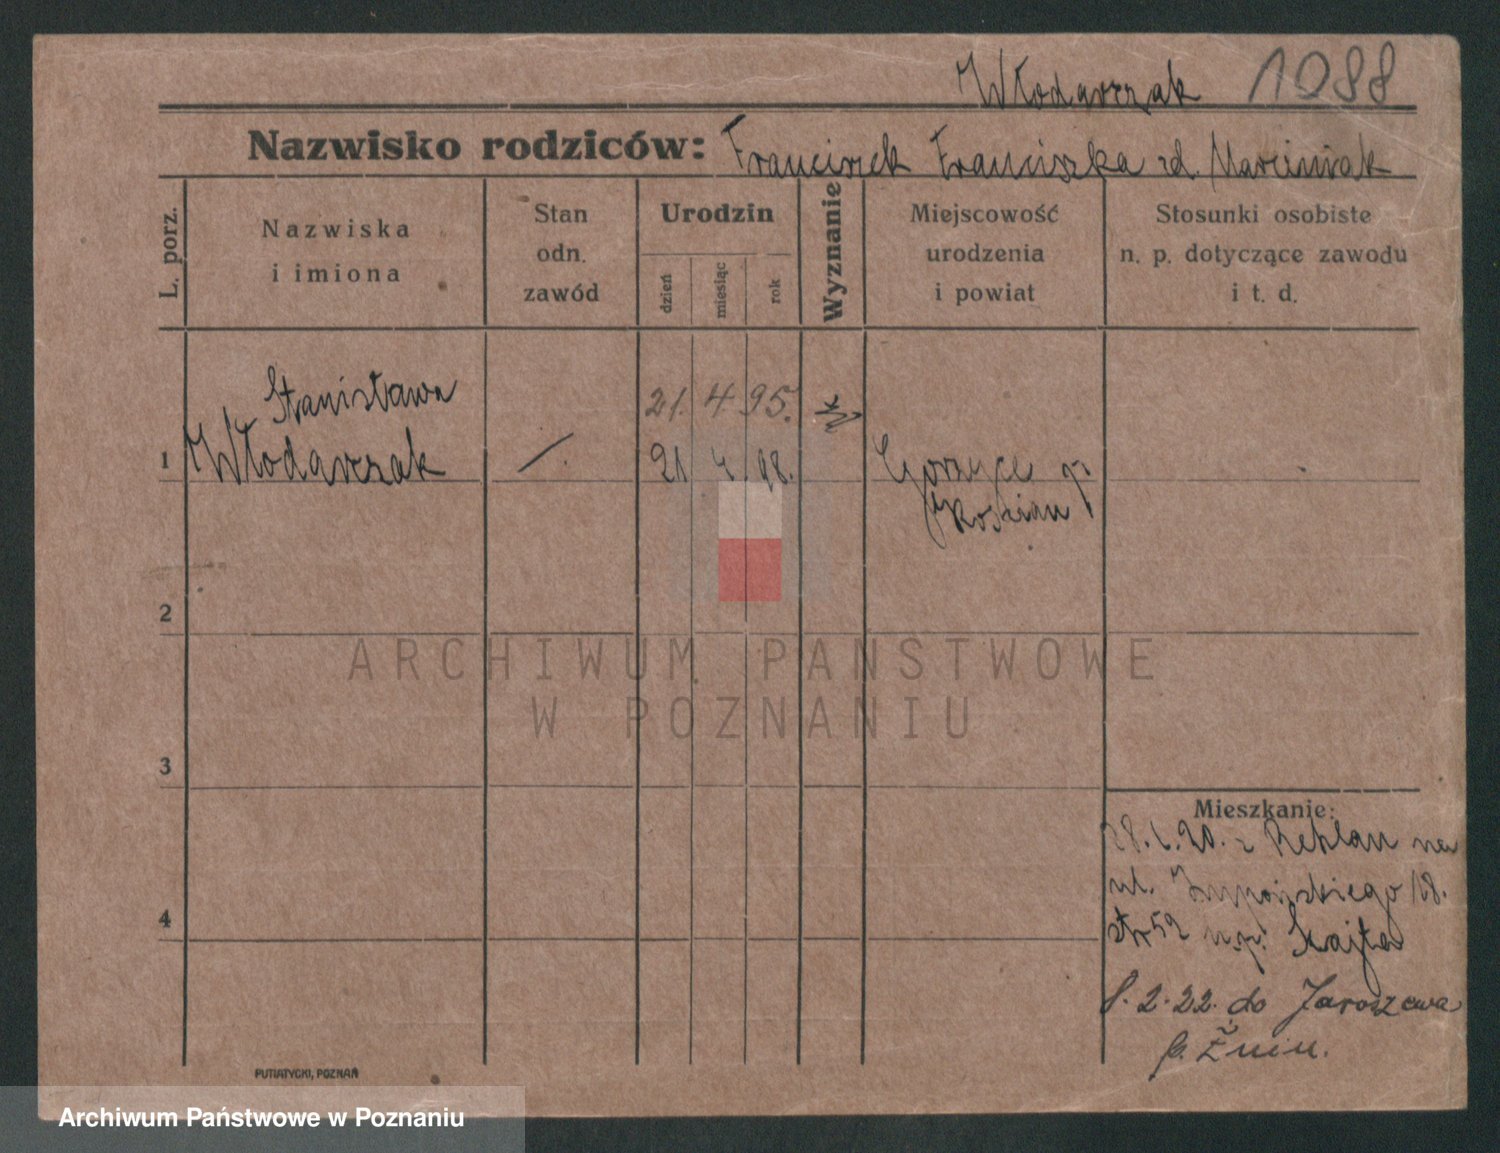 Włodarczak 1088
Nazwisko rodziców: Franciszek Franciszka zd. Marciniak
L. porz.
Nazwiska
i imiona
Stan
odn.
zawód
Urodzin
dzień
miesiąc
rok
Wyznanie
Miejscowość
urodzenia
i powiat
Stosunki osobiste
n. p. dotyczące zawodu
i t. d.
Stanisława 21. 4 95.
1 Włodarczak 21 4 98. Gorzyce p.
Kościan
2
3
4
Mieszkanie:
20. z na
ul. 18.
str 59 u p.
8. 2. 22. do Jaroszewa
p. Żnin.
PUTIATYCKI, POZNAŃ
ARCHIWUM PAŃSTWOWE
W POZNANIU
Archiwum Państwowe w Poznaniu